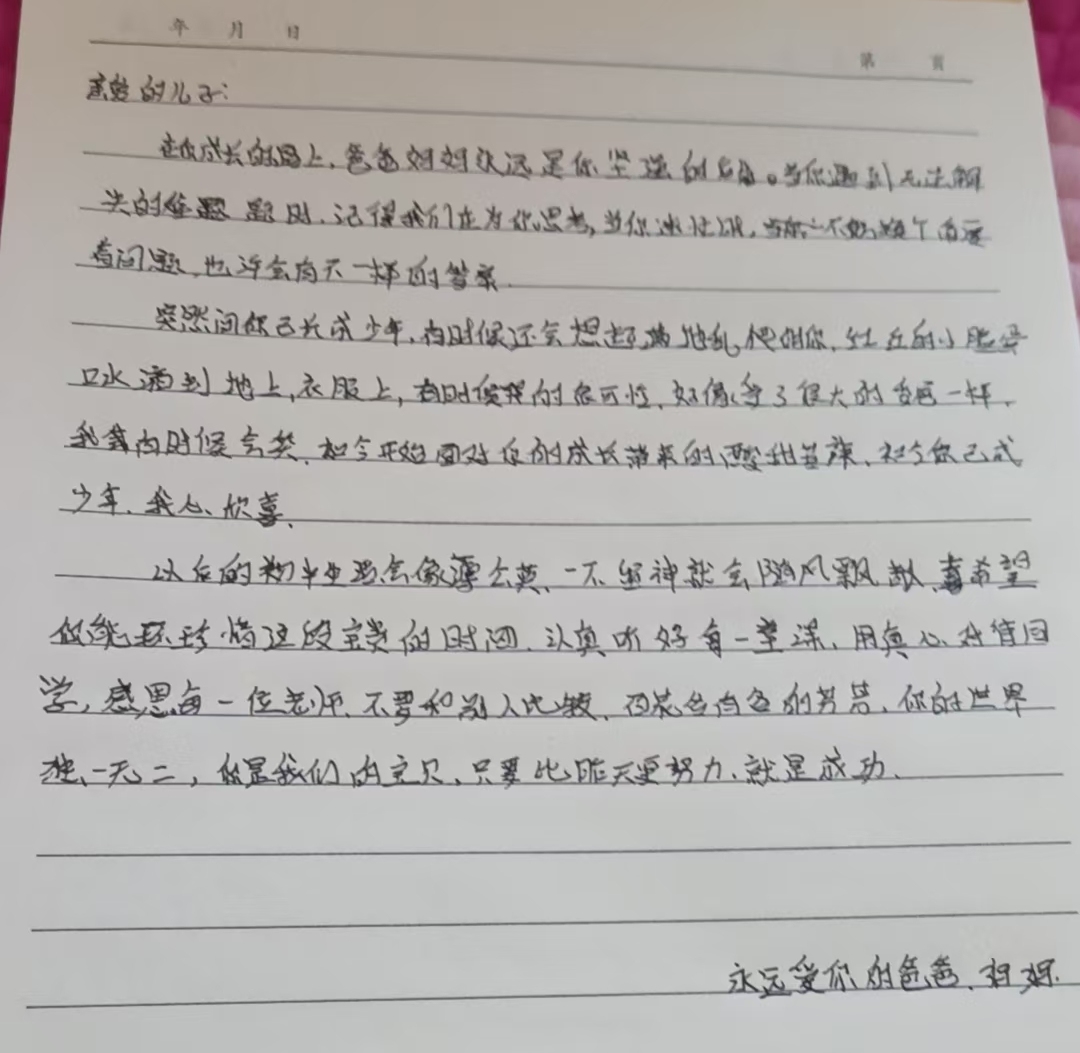 年 月 日
第 页
亲爱的儿子:
在你成长的路上,爸爸妈妈永远是你坚强的后盾。当你遇到无法解
决的难题 题时,记得我们在为你思考,当你迷茫时,不妨换个角度
看问题,也许会有不一样的答案.
突然间你已长成少年,有时候还会想起满地乱爬的你,红红的小脸蛋
口水滴到地上,衣服上,有时候哭的很可怜,好像受了很大的委屈一样,
我有时候会笑,如今开始面对你的成长带来的酸甜苦辣,如今你已成
少年,我心欣喜,
以后的初中生活会像蒲公英,一不留神就会随风飘散,真希望
你能珍惜这段宝贵的时间,认真听好每一堂课,用真心对待同
学,感恩每一位老师,不要和别人比较,百花各有各的芳香,你的世界
独一无二,你是我们的宝贝,只要比昨天更努力,就是成功.
永远爱你的爸爸、妈妈.